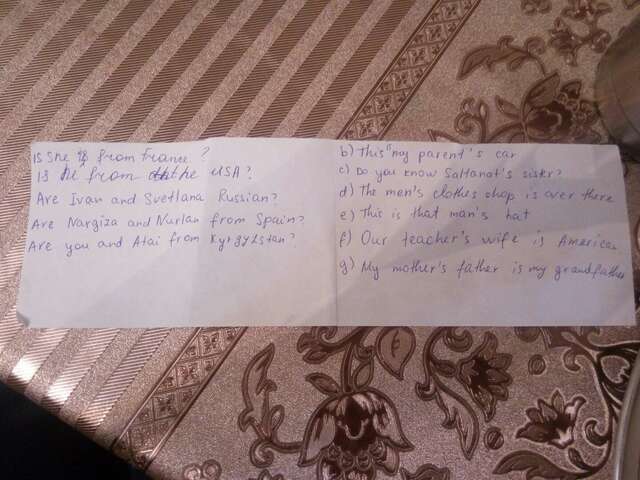 Is she from France?
Is he from the USA?
Are Ivan and Svetlana Russian?
Are Nargiza and Nurlan from Spain?
Are you and Atai from Kyrgyzstan?
b) This my parent's car
c) Do you know Saltanat's sister?
d) The men's clothes shop is over there
e) This is that man's hat
f) Our teacher's wife is America
g) My mother's father is my grandfather